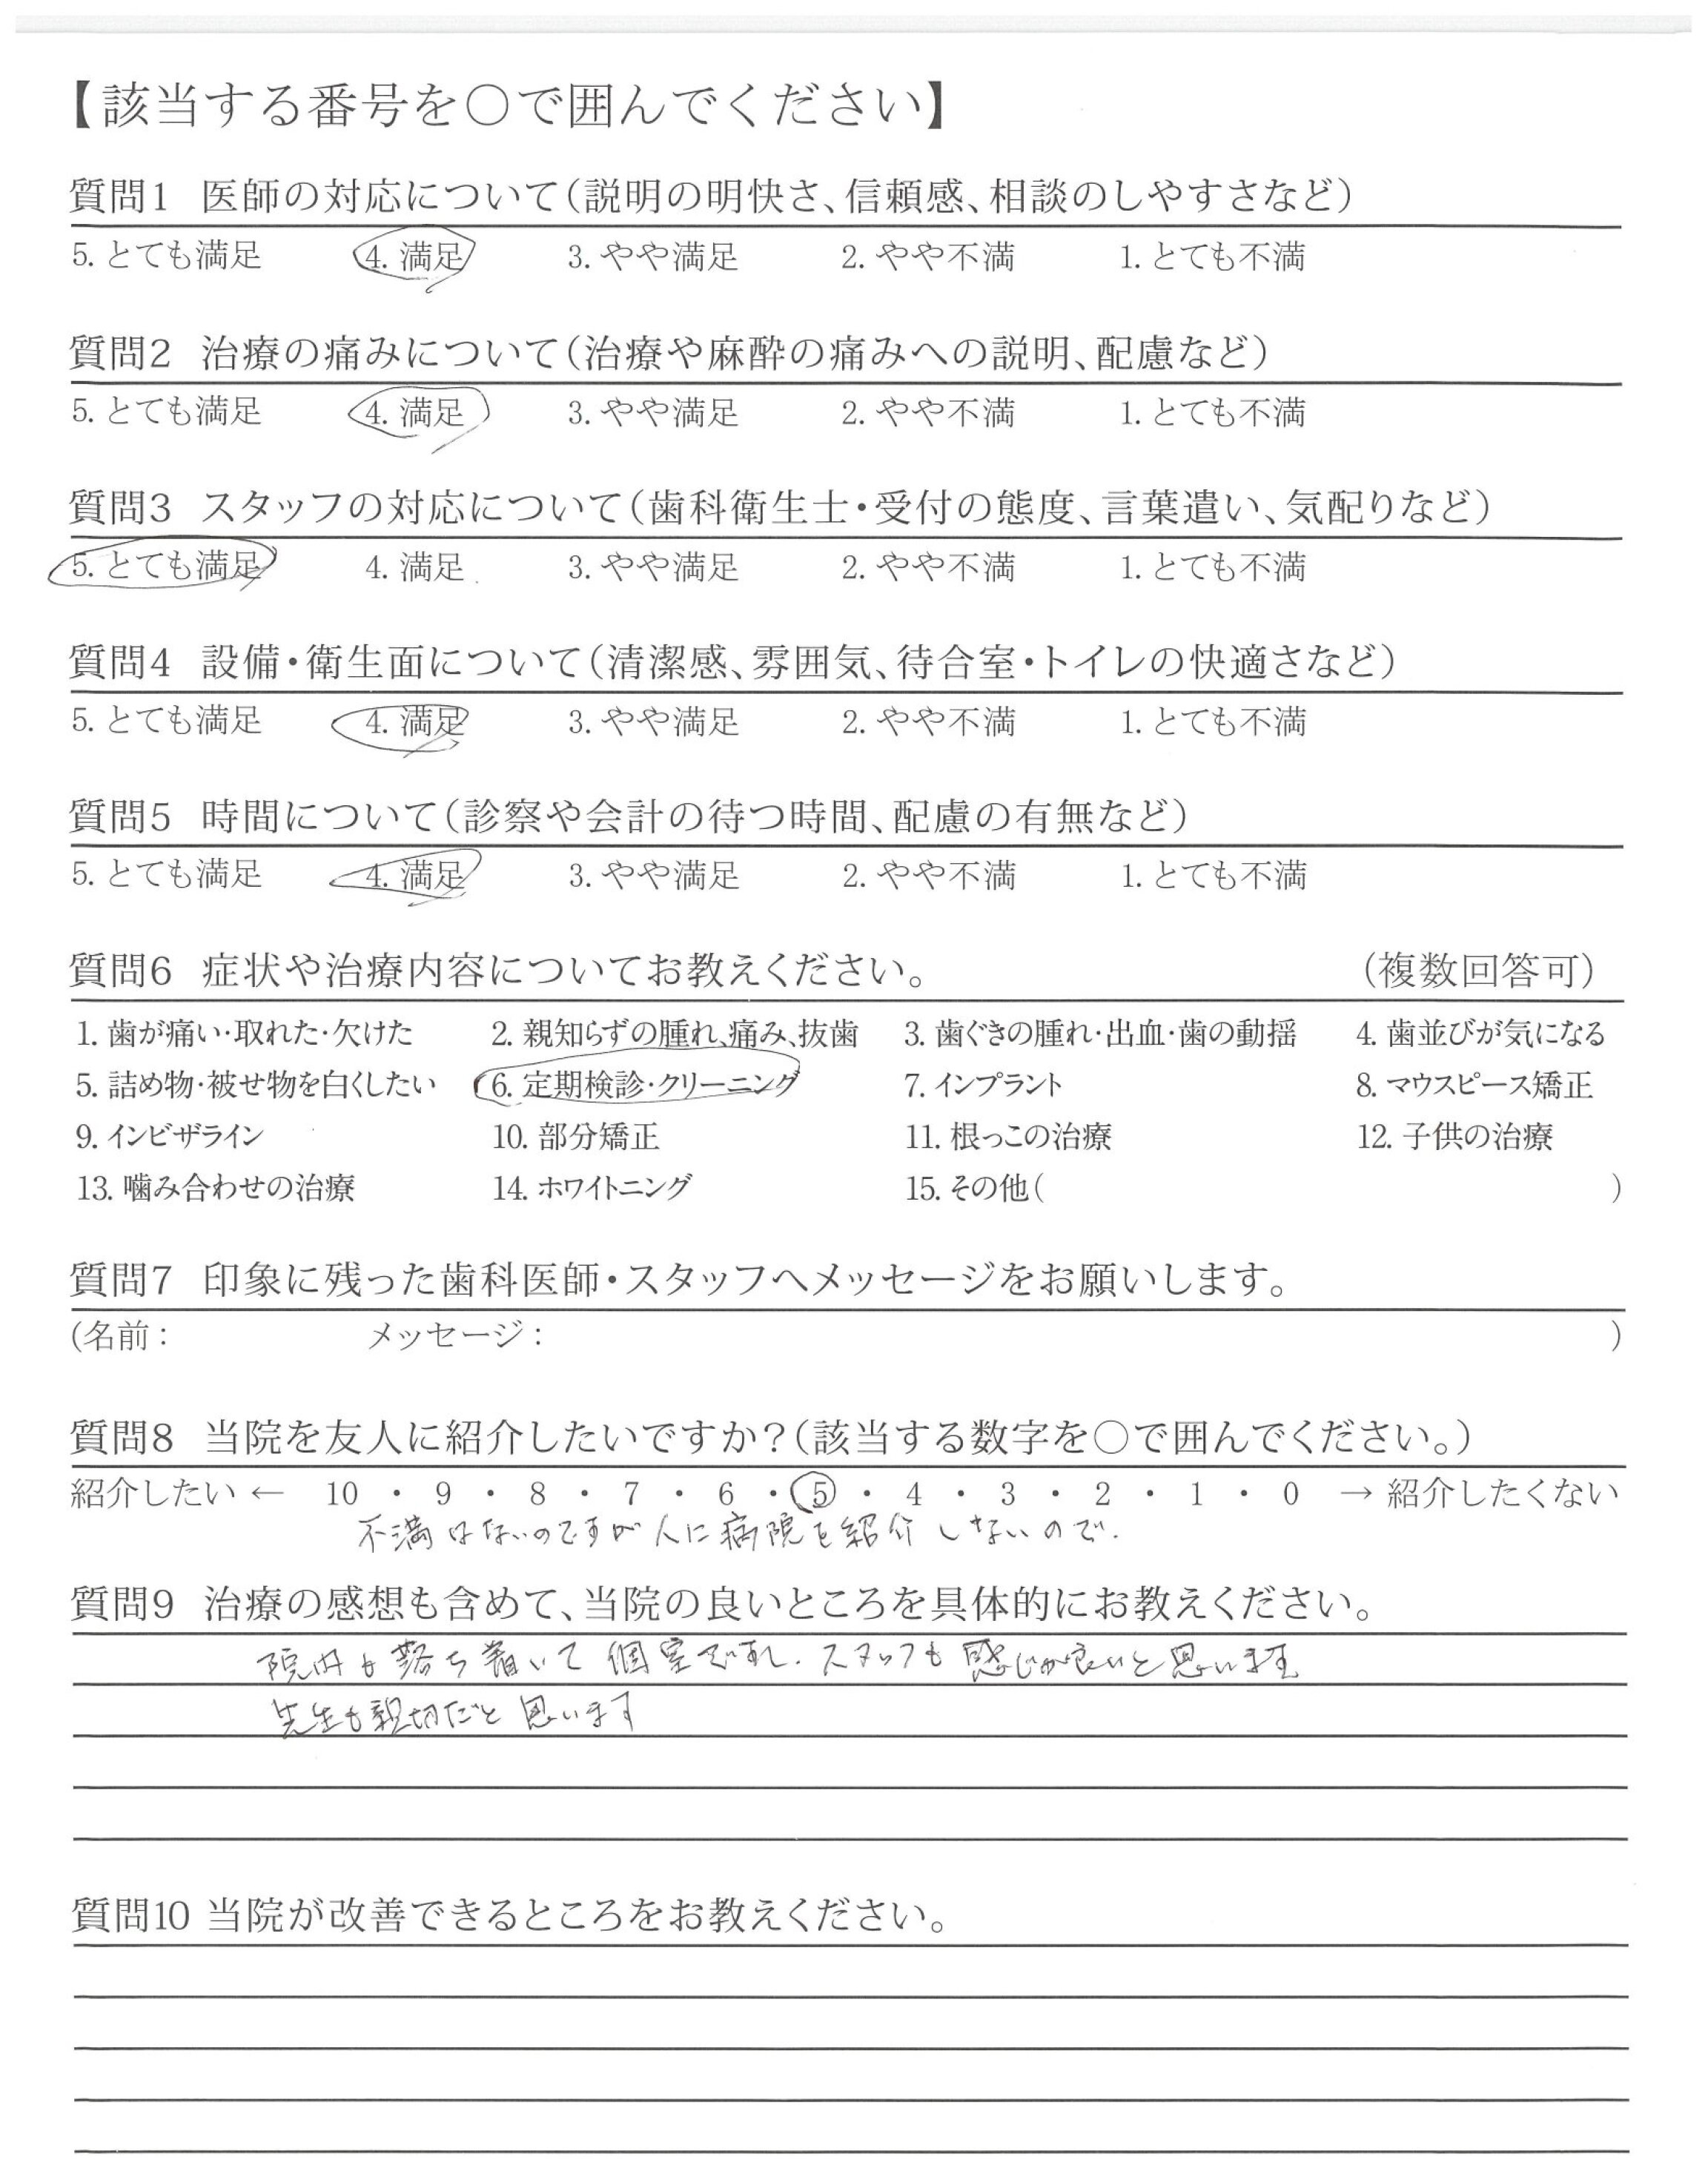 【該当する番号を○で囲んでください】
質問1 医師の対応について（説明の明快さ、信頼感、相談のしやすさなど）
5. とても満足 4. 満足 3. やや満足 2. やや不満 1. とても不満
質問2 治療の痛みについて（治療や麻酔の痛みへの説明、配慮など）
5. とても満足 4. 満足 3. やや満足 2. やや不満 1. とても不満
質問3 スタッフの対応について（歯科衛生士・受付の態度、言葉遣い、気配りなど）
5. とても満足 4. 満足 3. やや満足 2. やや不満 1. とても不満
質問4 設備・衛生面について（清潔感、雰囲気、待合室・トイレの快適さなど）
5. とても満足 4. 満足 3. やや満足 2. やや不満 1. とても不満
質問5 時間について（診察や会計の待つ時間、配慮の有無など）
5. とても満足 4. 満足 3. やや満足 2. やや不満 1. とても不満
質問6 症状や治療内容についてお教えください。 （複数回答可）
1. 歯が痛い・取れた・欠けた 2. 親知らずの腫れ、痛み、抜歯 3. 歯ぐきの腫れ・出血・歯の動揺 4. 歯並びが気になる
5. 詰め物・被せ物を白くしたい 6. 定期検診・クリーニング 7. インプラント 8. マウスピース矯正
9. インビザライン 10. 部分矯正 11. 根っこの治療 12. 子供の治療
13. 噛み合わせの治療 14. ホワイトニング 15. その他（ ）
質問7 印象に残った歯科医師・スタッフへメッセージをお願いします。
（名前： メッセージ： ）
質問8 当院を友人に紹介したいですか？（該当する数字を○で囲んでください。）
紹介したい ← 10 ・ 9 ・ 8 ・ 7 ・ 6 ・ 5 ・ 4 ・ 3 ・ 2 ・ 1 ・ 0 → 紹介したくない
不満はないのですが人に病院を紹介しないので.
質問9 治療の感想も含めて、当院の良いところを具体的にお教えください。
院内も落ち着いて個室ですし、スタッフも感じが良いと思います
先生も親切だと思います
質問10 当院が改善できるところをお教えください。